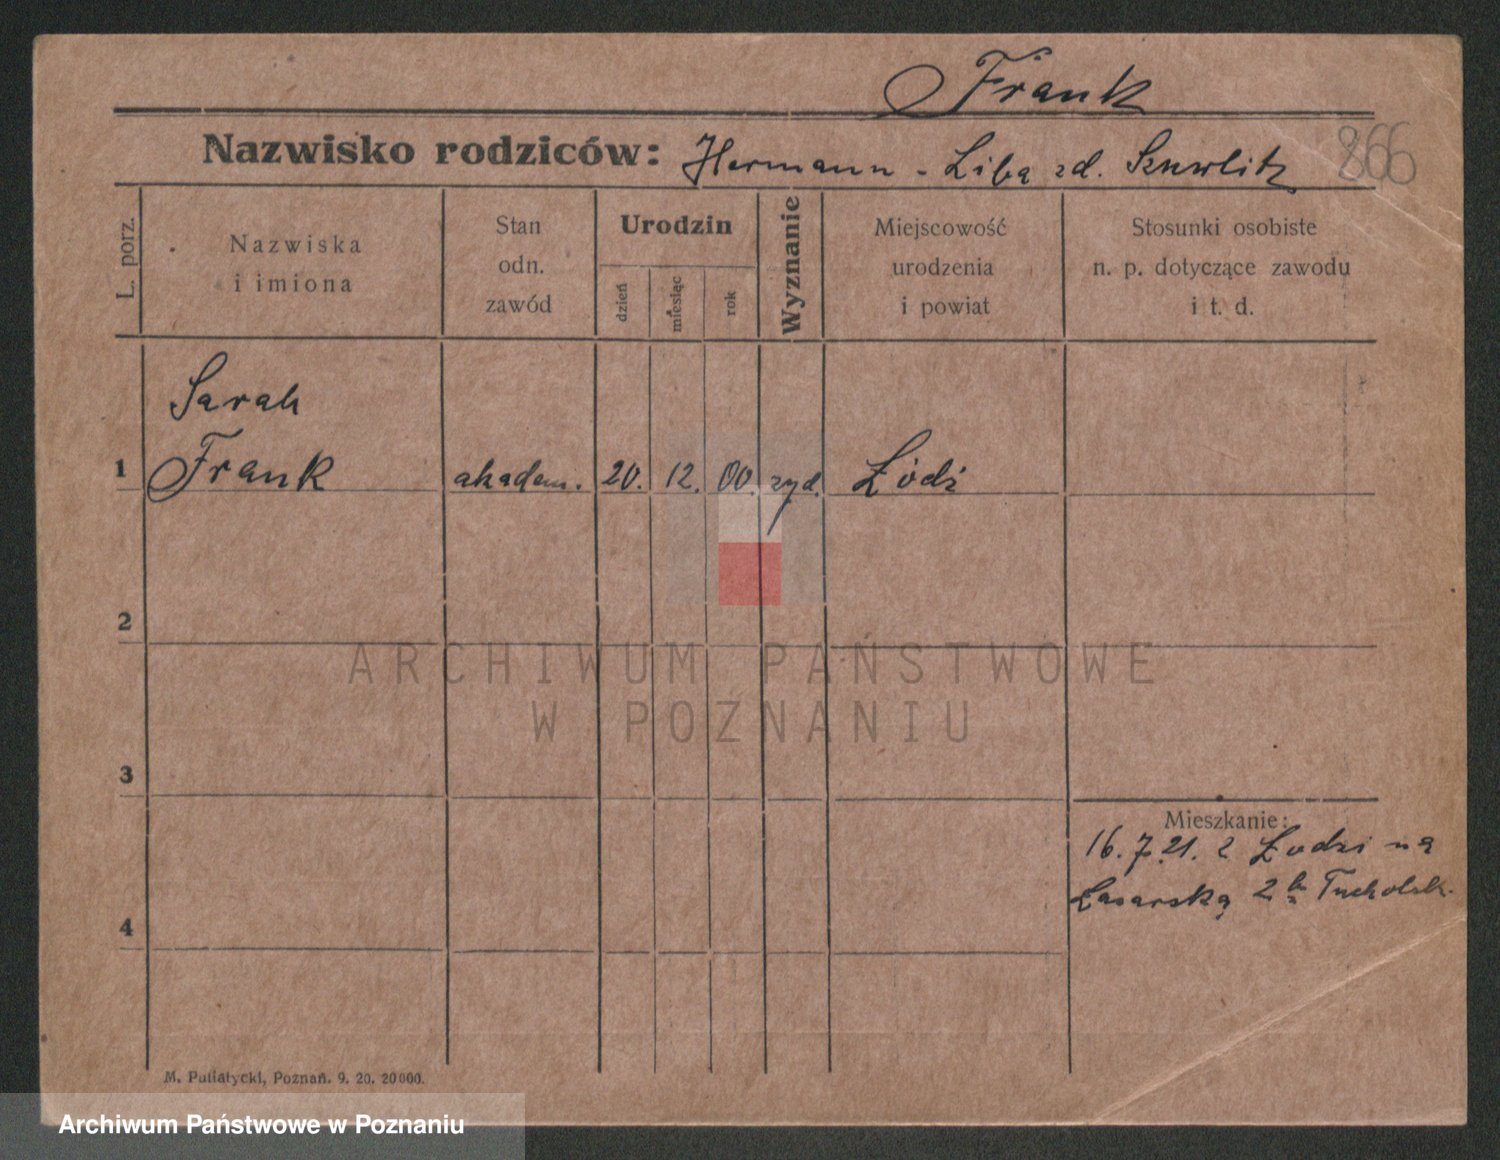 Frank
Nazwisko rodziców: Hermann - Liba zd. Szurlitz
866
L. porz.
Nazwiska
i imiona
Stan
odn.
zawód
Urodzin
dzień
miesiąc
rok
Wyznanie
Miejscowość
urodzenia
i powiat
Stosunki osobiste
n. p. dotyczące zawodu
i t. d.
Sarah
1 Frank akadem. 20. 12. 00. żyd. Łódź
2
3
Mieszkanie:
16. 7. 21. z Łodzi na
Łazarską 2 Tucholsk.
4
M. Putiatycki, Poznań. 9. 20. 20000.
ARCHIWUM PAŃSTWOWE
W POZNANIU
Archiwum Państwowe w Poznaniu